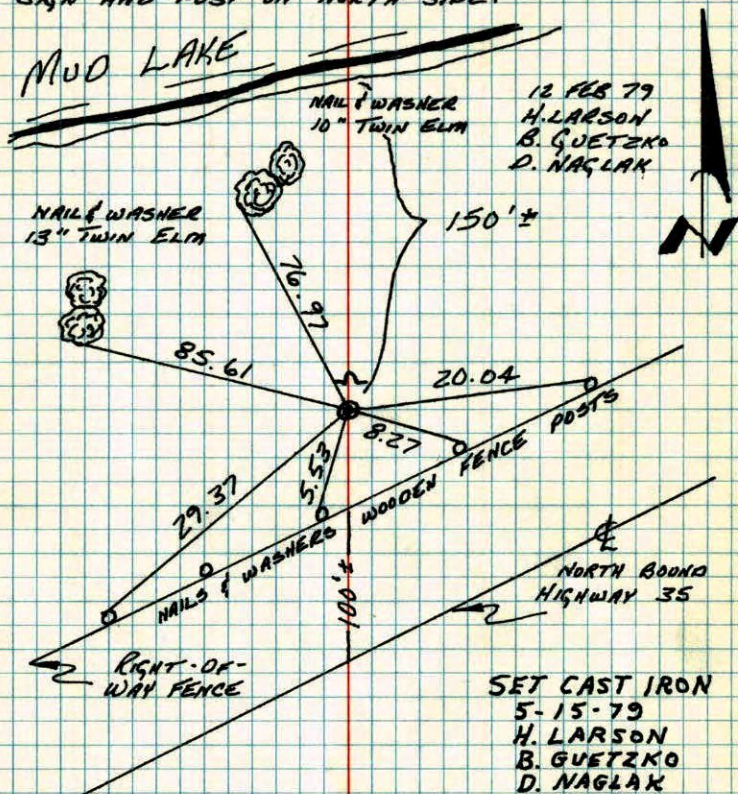 SIGN AND POST ON NORTH SIDE.
MUD LAKE
NAIL & WASHER
10" TWIN ELM
12 FEB 79
H. LARSON
B. GUETZKO
D. NAGLAK
NAIL & WASHER
13" TWIN ELM
150'±
N
76.97
85.61
20.04
8.27
5.53
29.37
NAILS & WASHERS WOODEN FENCE POSTS
100'±
℄
NORTH BOUND
HIGHWAY 35
RIGHT-OF-
WAY FENCE
SET CAST IRON
5-15-79
H. LARSON
B. GUETZKO
D. NAGLAK